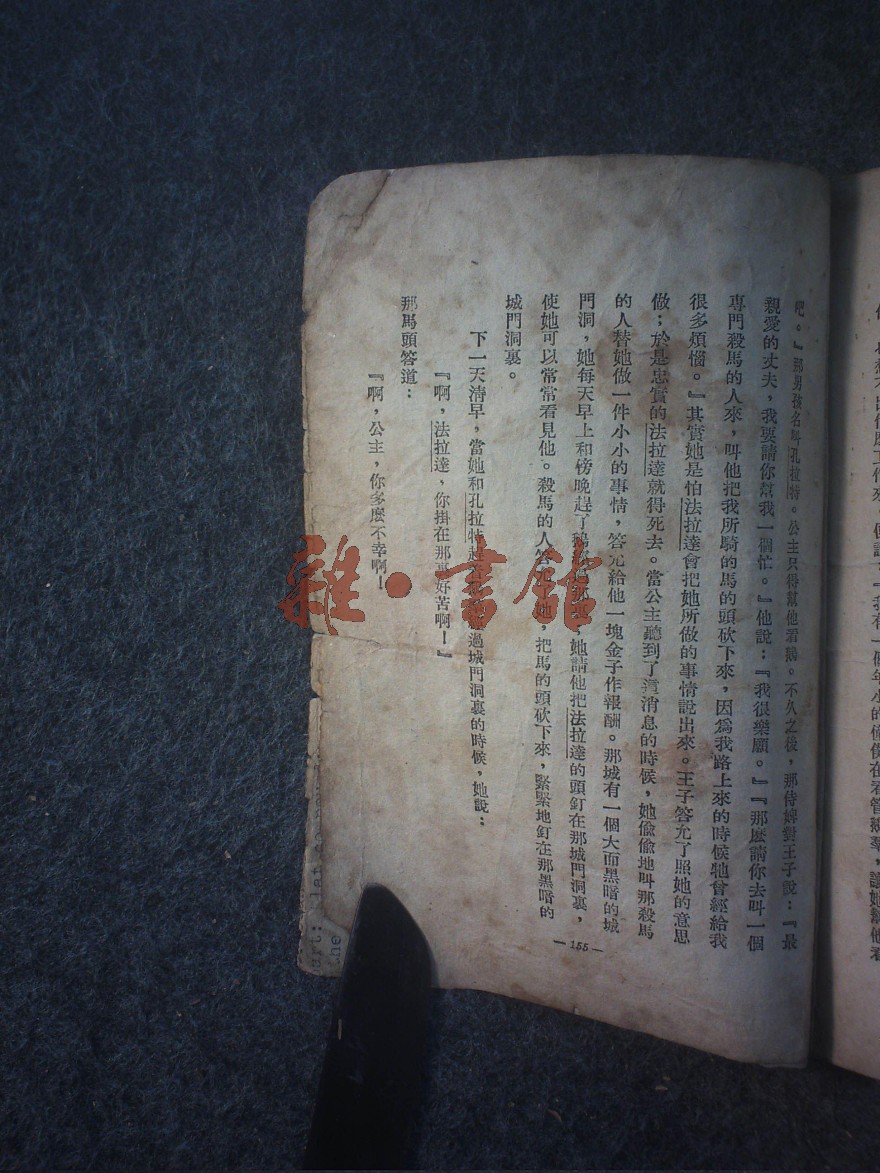 吧。』那男孩名叫孔拉特。公主只得幫他看鵝。不久之後，那侍婢對王子說：『最
親愛的丈夫，我要請你幫我一個忙。』他說：『我很樂願。』『那麼請你去叫一個
專門殺馬的人來，叫他把我所騎的馬的頭砍下來，因爲我路上來的時候牠曾經給我
很多煩惱。』其實她是怕法拉達會把她所做的事情說出來。王子答允了照她的意思
做；於是忠實的法拉達就得死去。當公主聽到了這消息的時候，她偷偷地叫那殺馬
的人替她做一件小小的事情，答允給他一塊金子作報酬。那城有一個大而黑暗的城
門洞，她每天早上和傍晚趕了鵝過那裏，她請他把法拉達的頭釘在那城門洞裏，
使她可以常常看見他。殺馬的人答她，把馬的頭砍下來，緊緊地釘在那黑暗的
城門洞裏。
下一天清早，當她和孔拉特趕過城門洞裏的時候，她說：
『啊，法拉達，你掛在那裏好苦啊！』
那馬頭答道：
『啊，公主，你多麼不幸啊！
— 155 —
雜·書館
art: lat
the